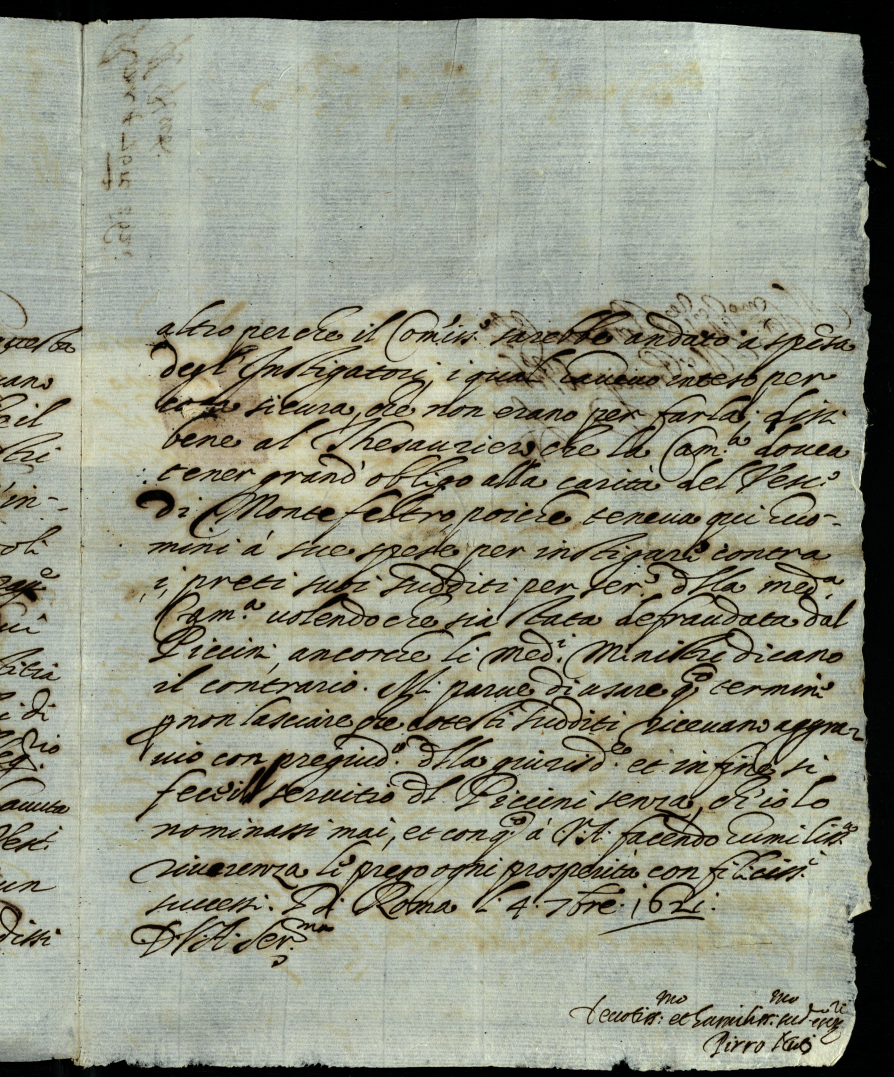 altro perche il Com.iss.º sarebbe andato à spesa
degl' Instigatori, i quali haueuo inteso per
cosa sicura, che non erano per farla; dissi
bene al Thesauriero, che la Cam.ª douea
tener grand' obligo alla carità del Vesc.º
di Monte feltro poiche teneua qui huo-
mini à sue spese per instigare contra
i preti suoi sudditi per ser.º dlla med.ª
Cam.ª uolendo che sia stata defraudata dal
Piccini, ancorche li med.i Ministri dicano
il contrario. Mi parue di usare q.º termine
p non lasciare che cotesti sudditi riceuano aggra-
uio con pregiud.º dlla giurisd.e et in fine si
fece il seruitio dl Piccini senza, ch'io lo
nominassi mai, et con q.º à V.A. facendo humiliss.ª
riuerenza le prego ogni prosperità con feliciss.i
successi. Di Roma li 4. 7bre. 1621.
D. V. A. Ser.ma
Deuotiss.mo et humiliss.mo
Pirro